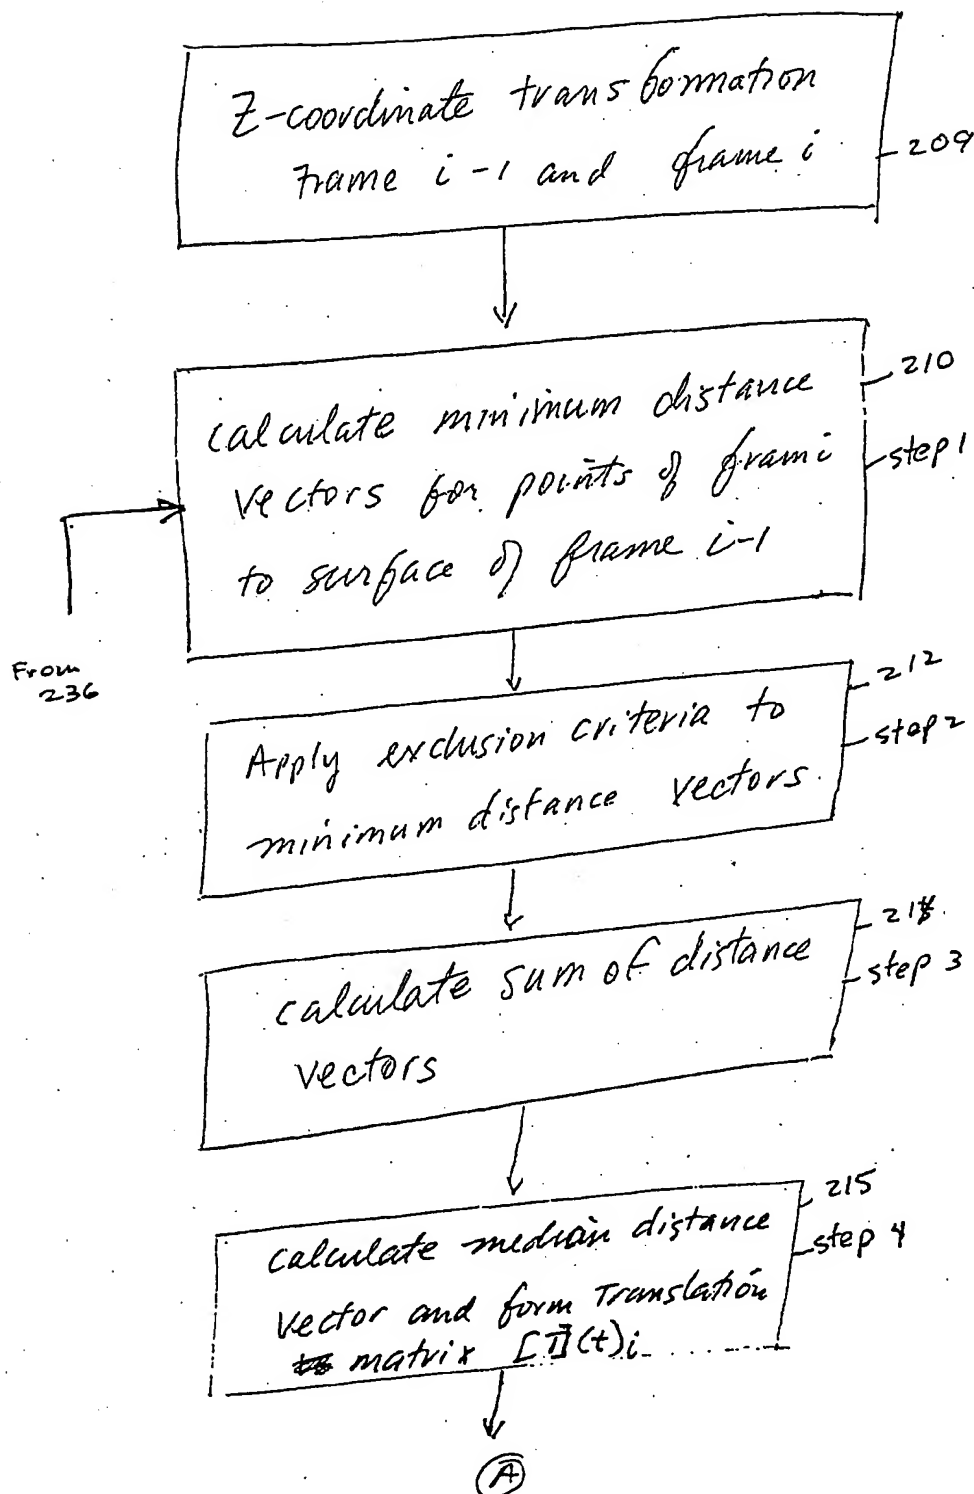 Z-coordinate transformation
Frame i-1 and frame i
209
calculate minimum distance
vectors for points of frami
to surface of frame i-1
210
step 1
From
236
Apply exclusion criteria to
minimum distance vectors.
212
step 2
calculate sum of distance
vectors
step 3
calculate median distance
vector and form Translation
matrix [T](t)i
215
step 4
A